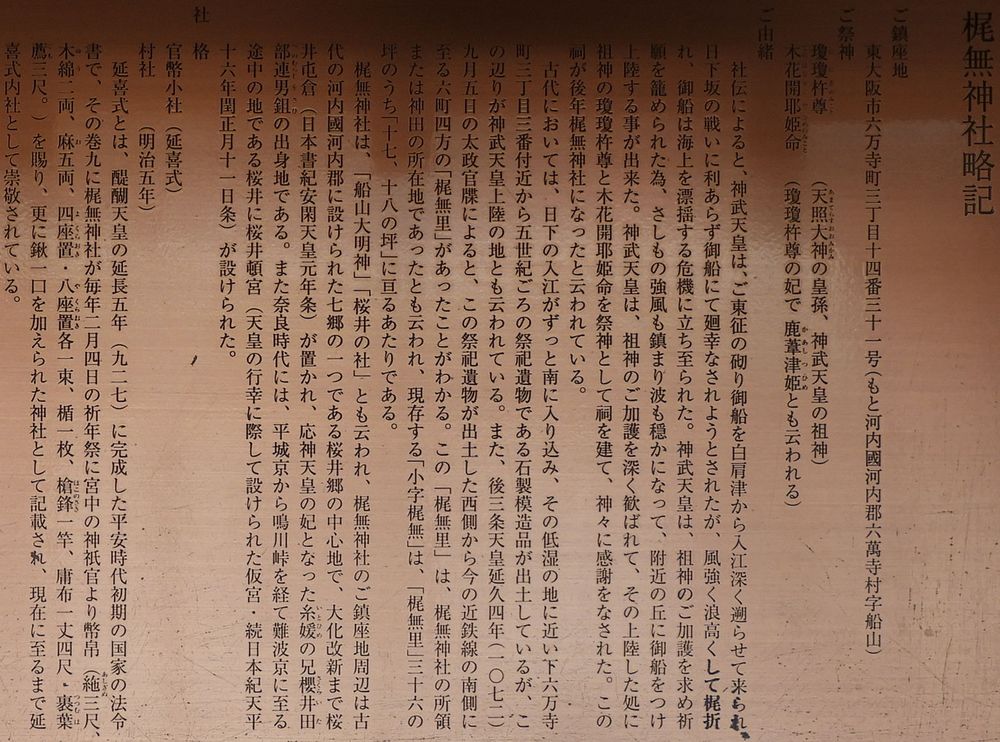 梶無神社略記
ご鎮座地
東大阪市六万寺町三丁目十四番三十一号(もと河内國河内郡六萬寺村字船山)
ご祭神
瓊瓊杵尊 (天照大神の皇孫、神武天皇の祖神)
木花開耶姫命 (瓊瓊杵尊の妃で 鹿葦津姫とも云われる)
ご由緒
社伝によると、神武天皇は、ご東征の砌り御船を白肩津から入江深く遡らせて来られ
日下坂の戦いに利あらず御船にて廻幸なされようとされたが、風強く浪高くして梶折
れ、御船は海上を漂揺する危機に立ち至られた。神武天皇は、祖神のご加護を求め祈
願を籠められた為、さしもの強風も鎮まり波も穏かになって、附近の丘に御船をつけ
上陸する事が出来た。神武天皇は、祖神のご加護を深く歓ばれて、その上陸した処に
祖神の瓊瓊杵尊と木花開耶姫命を祭神として祠を建て、神々に感謝をなされた。この
祠が後年梶無神社になったと云われている。
古代においては、日下の入江がずっと南に入り込み、その低湿の地に近い下六万寺
町三丁目三番付近から五世紀ごろの祭祀遺物である石製模造品が出土しているが、こ
の辺りが神武天皇上陸の地とも云われている。また、後三条天皇延久四年(一〇七二)
九月五日の太政官牒によると、この祭祀遺物が出土した西側から今の近鉄線の南側に
至る六町四方の「梶無里」があったことがわかる。この「梶無里」は、梶無神社の所領
または神田の所在地であったとも云われ、現存する「小字梶無」は、「梶無里」三十六の
坪のうち「十七、十八の坪」に亘るあたりである。
梶無神社は、「船山大明神」「桜井の社」とも云われ、梶無神社のご鎮座地周辺は古
代の河内國河内郡に設けられた七郷の一つである桜井郷の中心地で、大化改新まで桜
井屯倉(日本書紀安閑天皇元年条)が置かれ、応神天皇の妃となった糸媛の兄櫻井田
部連男鉏の出身地である。また奈良時代には、平城京から鳴川峠を経て難波京に至る
途中の地である桜井に桜井頓宮(天皇の行幸に際して設けられた仮宮・続日本紀天平
十六年閏正月十一日条)が設けられた。
社格
官幣小社 (延喜式)
村社 (明治五年)
延喜式とは、醍醐天皇の延長五年(九二七)に完成した平安時代初期の国家の法令
書で、その巻九に梶無神社が毎年二月四日の祈年祭に宮中の神祇官より幣帛(絁三尺、
木綿二両、麻五両、四座置・八座置各一束、楯一枚、槍鋒一竿、庸布一丈四尺・裹葉
薦三尺。)を賜り、更に鍬一口を加えられた神社として記載され、現在に至るまで延
喜式内社として崇敬されている。